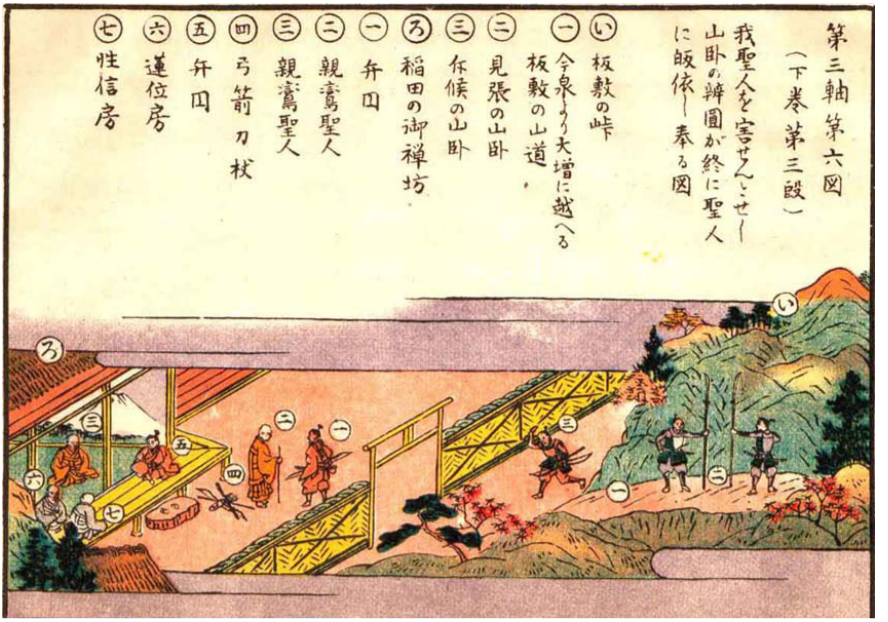 第三軸第六図
(下巻第三段)
我聖人を害せんとせし
山卧の辨圓が終に聖人
に皈依し奉る図
い 板敷の峠
一 今泉より大増に越へる
板敷の山道
二 見張の山卧
三 斥候の山卧
ろ 稲田の御禅坊
一 弁円
二 親鸞聖人
三 親鸞聖人
四 弓箭刀杖
五 弁円
六 蓮位房
七 性信房
い
二
一
三
一
二
四
五
三
ろ
六
七